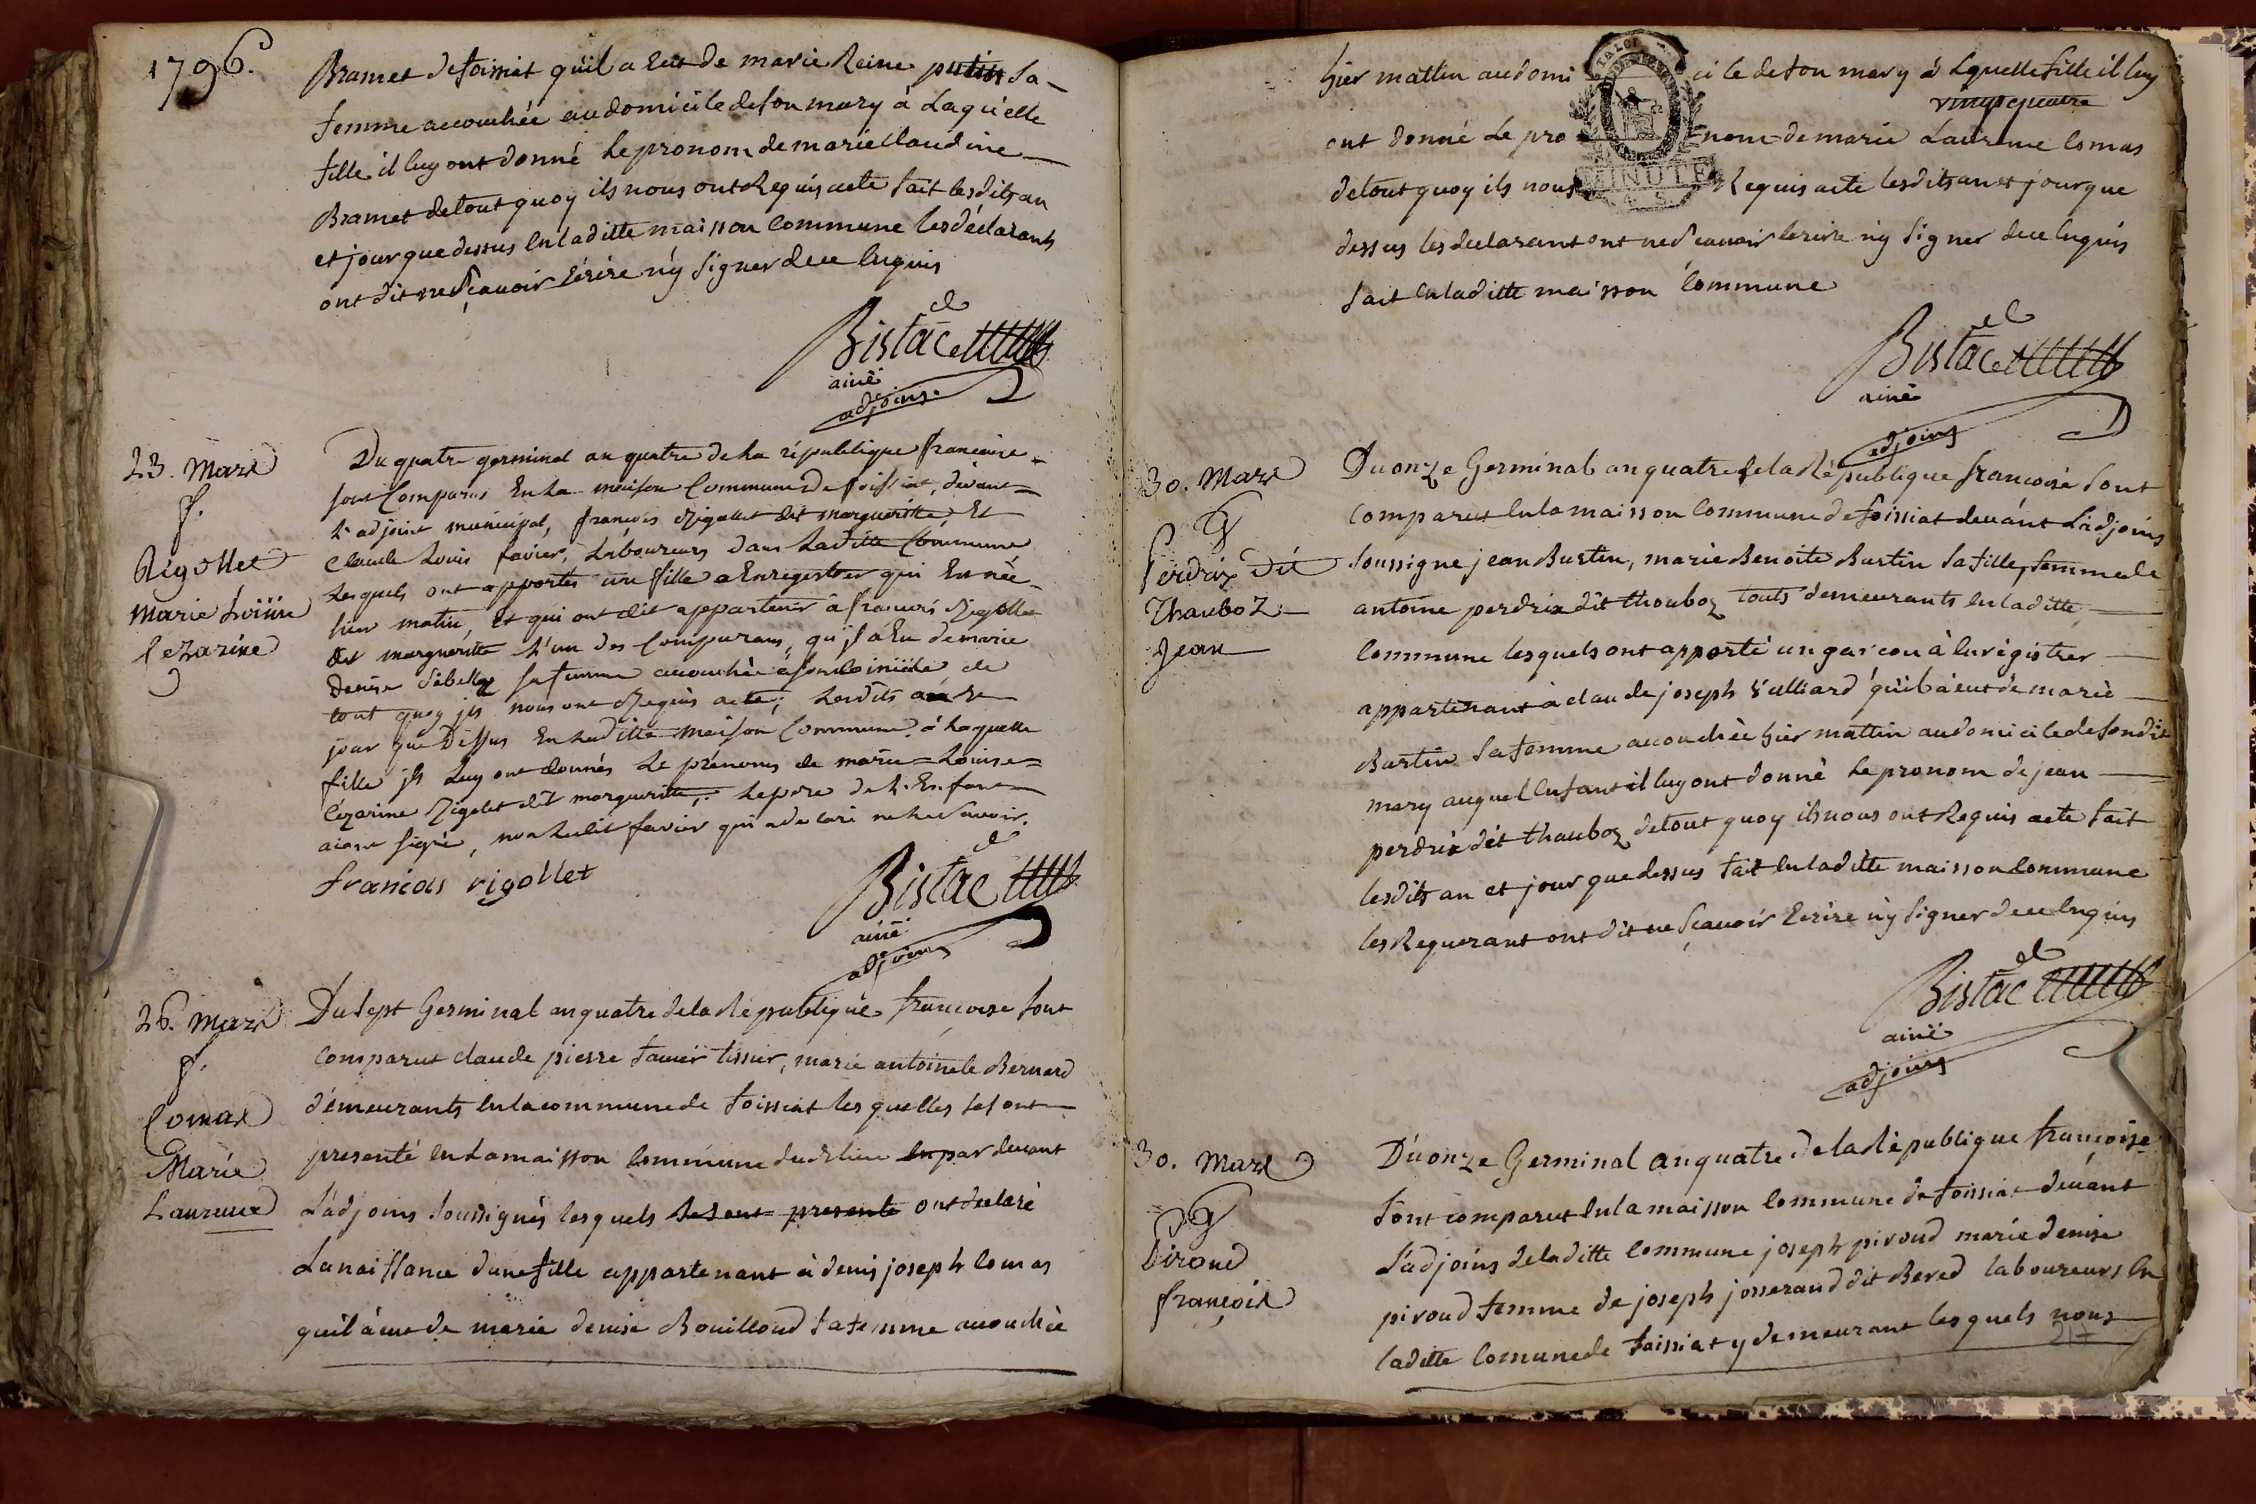 1796.
Bramet de foissiat qu'il a eut de marie Reine putin sa
femme accouchée au domicile de son mary à Laquelle
fille il luy ont donné le pronom de marie Claudine
Bramet de tout quoy ils nous ont Requis acte fait lesdits an
et jour que dessus en la ditte maisson Commune les déclarants
ont dit ne sçavoir Ecrire ny signer de ce Enquis
Bistac
ainé
adjoins
23. Mars
f.
Rigollet
Marie Loüise
Cezarine
Du quatre germinal an quatre de La république francaise
sont Comparus En La maison Commune De foissiat, devant
L'adjoint municipal, françois Rigollet dit margueritte Et
Claude Louis favier, Laboureurs dans Laditte Commune
Lesquels ont apportés une fille a Enregistrer qui Est née
hier matin, Et qui ont dit appartenir à francois Rigollet
dit margueritte L'un des Comparans, qu'il a Eu de marie
Denise Sibellez sa femme accouchée à son domicile de
tout quoy ils nous ont Requis acte; Lesdits an de
jour que Dessus En Laditte Maison Commune. à Laquelle
fille ils Luy ont donnés Le prénoms de marie=Louise=
Cézarine Rigolet dit marguerite, Le père de L'Enfant
aiant signé, non Ledit favier qui a declaré ne Le Savoir.
francois rigollet
Bistac
ainé
adjoins
26. Mars
f.
Comas
Marie
Laurence
Du sept Germinal an quatre de la République francoise sont
comparut claude pierre favier tissier, marie antoinele Bernard
démeurants en la commune de foissiat les quelles se sont
presenté en La maisson Commune dudt lieu en par devant
L'adjoins soussignés lesquels se sont presenté ont declaré
La naissance d'une fille appartenant à denis joseph Comas
qu'il à eut de marie denise Bouilloud sa femme accouchée
hier mattin au domi ci le de son mary à Lquelle fille il luy
vingt quatre
ont donné Le pro nom de marie Laurence Comas
MINUTE
de tout quoy ils nous Requis acte lesdits an et jour que
dessus les declarant ont ne sçavoir Ecrire ny signer de ce Enquis
fait En laditte maisson Commune
Bistac
ainé
adjoins
30. Mars
G
Perdrix dit
Thauboz
Jean
Du onze Germinal an quatre de la République francoise sont
comparut En la maisson Commune de foissiat devánt L'adjoins
soussigne jean Burtin, marie Benoite Burtin sa fille, femme de
antoine perdrix dit thouboz touts demeurants En laditte
Commune lesquels ont apporté un garcon à Enrégistrer
appartenant à claude joseph Vulliard qu'il à eut de marie
Burtin sa femme accouchée hier mattin au domicile de son dit
mary auquel Enfant il luy ont donné le pronom de jean
perdrix dit thauboz de tout quoy ils nous ont Requis acte fait
lesdits an et jour que dessus fait En la ditte maisson Commune
les Requerant ont dit ne sçavoir Ecrire ny signer de ce Enquis
Bistac
ainé
adjoins
30. Mars
G
Piroud
françois
Du onze Germinal an quatre de la République françoise
sont comparut En la maisson Commune de foissiat devánt
L'adjoins de laditte Commune joseph piroud marie denise
piroud femme de joseph josserand dit Bered laboureurs En
laditte Comune de foissiat y demeurant lesquels nous